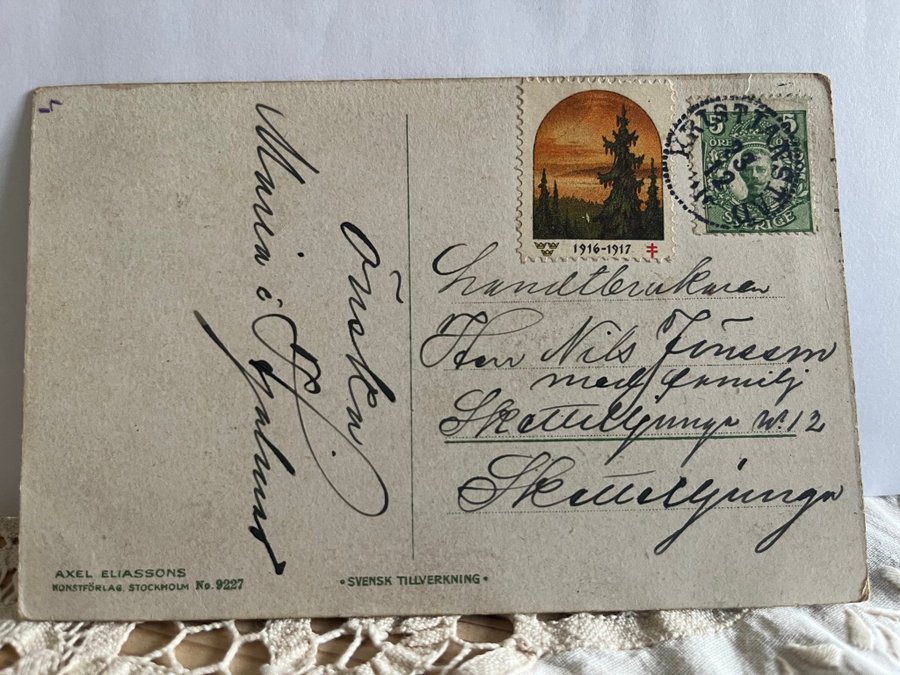 önskar
Maria i Hyalmar
1916-1917
5 5
ÖRE
SVERIGE
KRISTIANSTAD
Landtbrukaren
Herr Nils Jönsson
med familj
Skatteljunga N:12
Skatteljunga
AXEL ELIASSONS
KONSTFÖRLAG. STOCKHOLM No. 9227
• SVENSK TILLVERKNING •